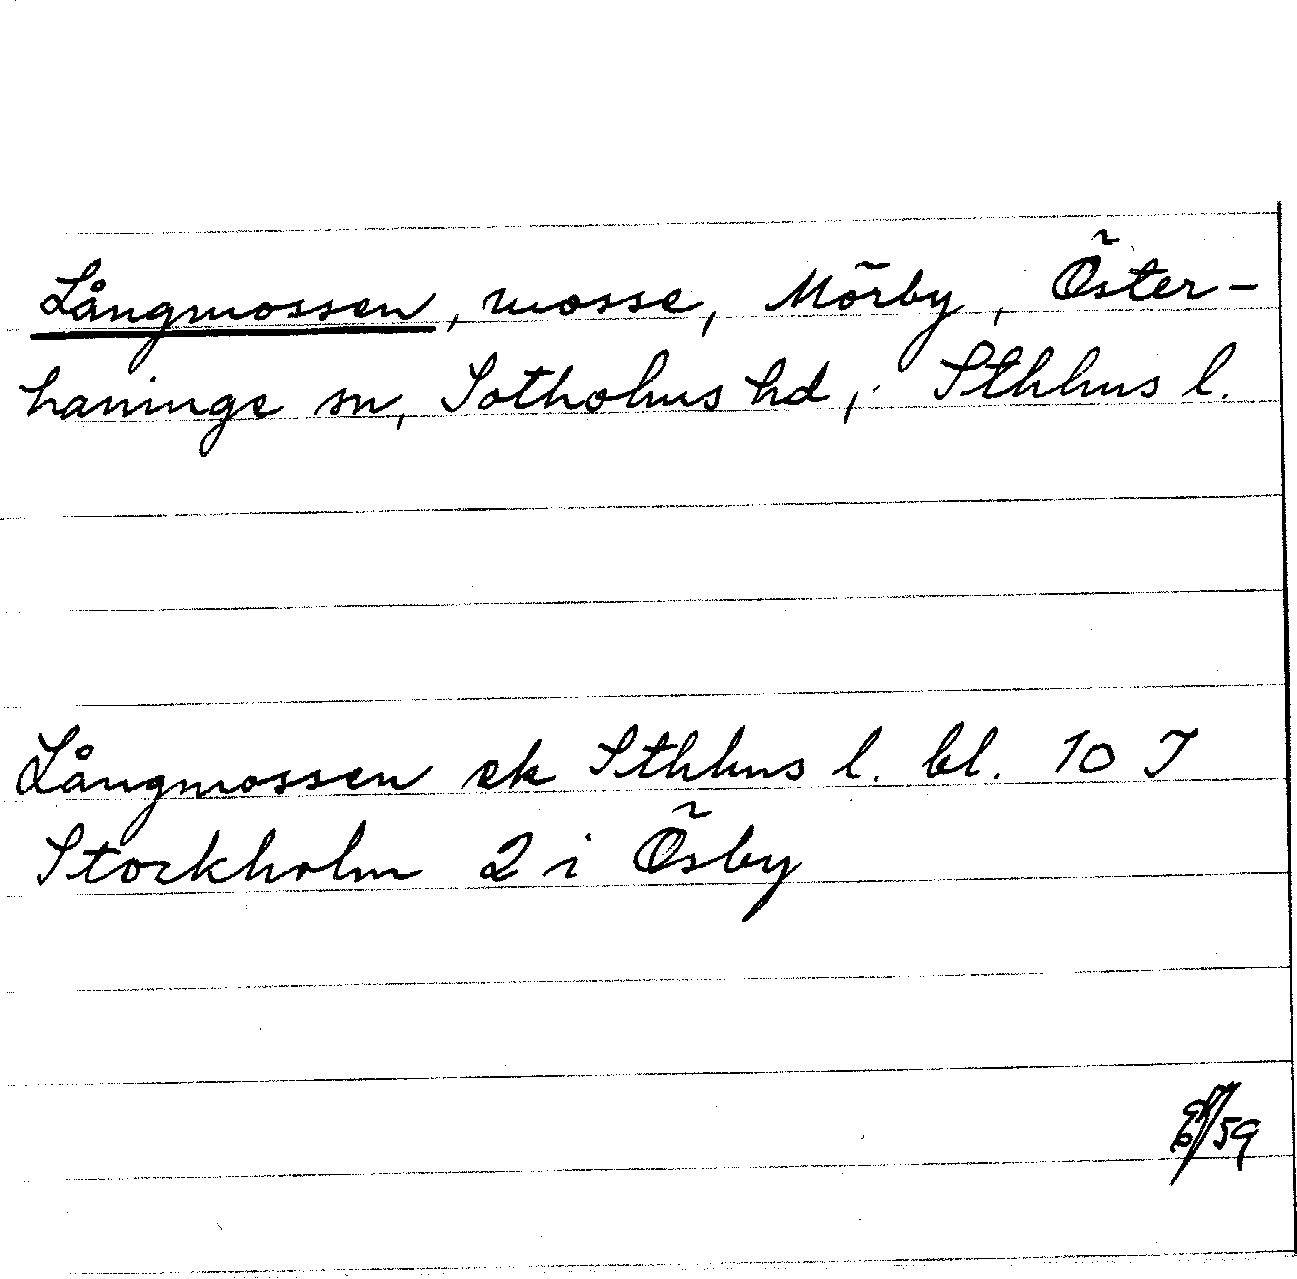 Långmossen, mosse, Mörby, Öster-
haninge sn, Sotholms hd, Sthlms l.
Långmossen ek Sthlms l. bl. 10 I
Stockholm 2 i Ösby
/59